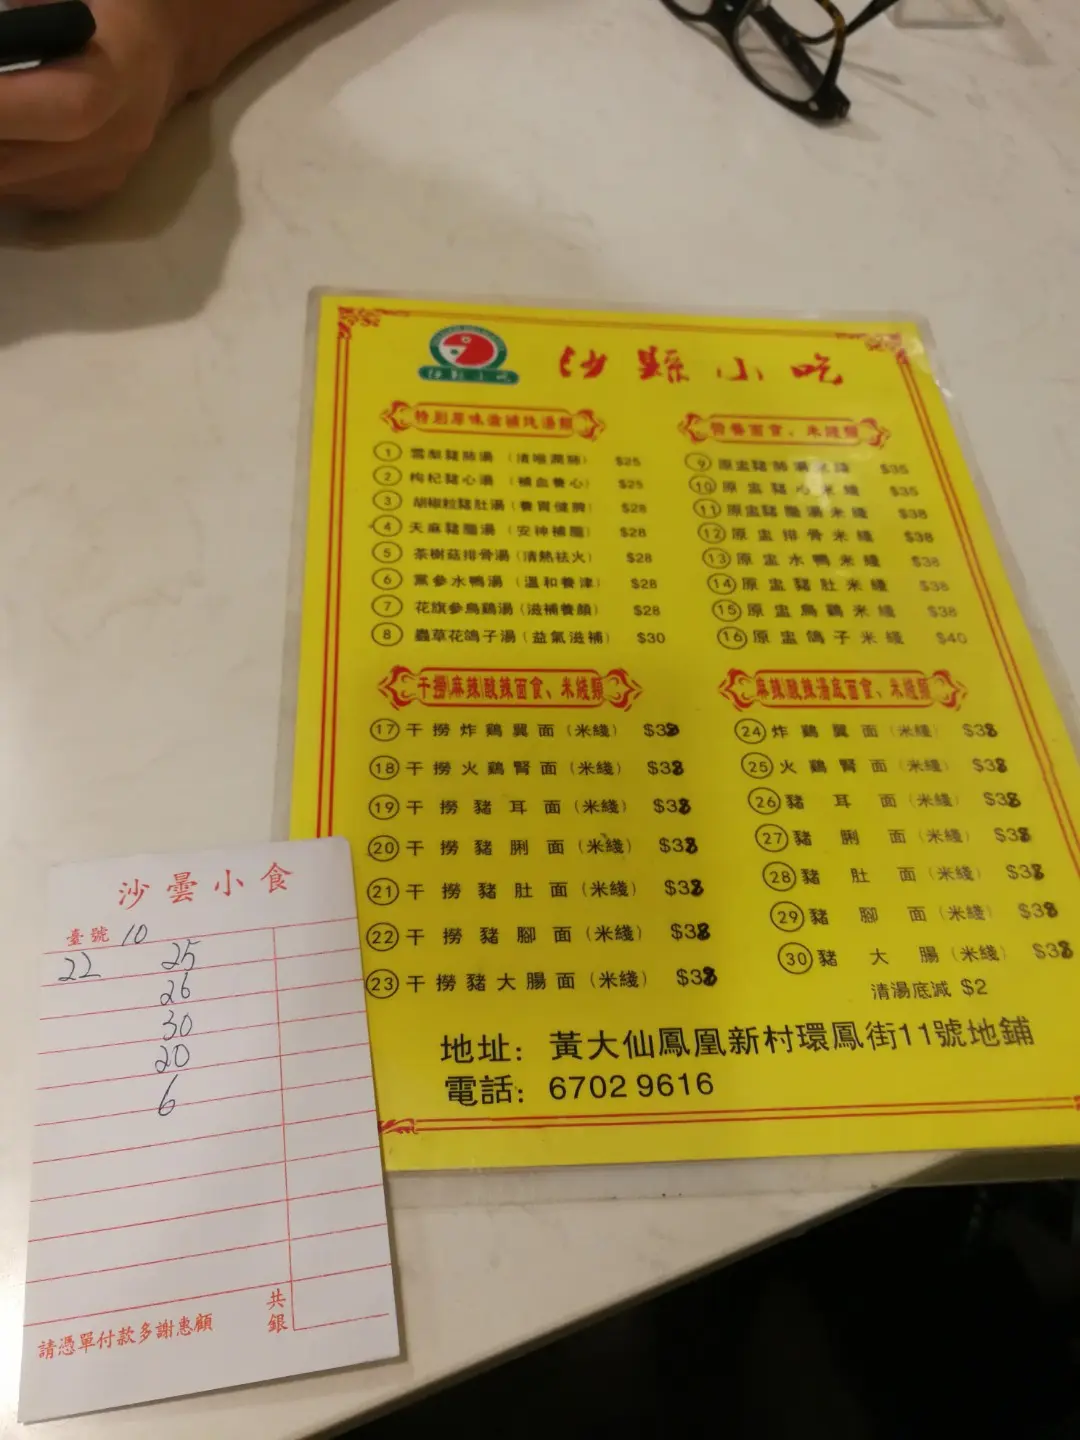 沙縣小吃
沙縣小吃
特別原味滋補炖湯類
① 雪梨豬肺湯 （清喉潤肺） $25
② 枸杞豬心湯 （補血養心） $25
③ 胡椒粒豬肚湯（養胃健脾） $28
④ 天麻豬腦湯 （安神補腦） $28
⑤ 茶樹菇排骨湯（清熱祛火） $28
⑥ 黨參水鴨湯 （溫和養津） $28
⑦ 花旗參烏鷄湯（滋補養顏） $28
⑧ 蟲草花鴿子湯（益氣滋補） $30
營養面食、米綫類
⑨ 原盅豬肺湯米綫 $35
⑩ 原盅豬心米綫 $35
⑪ 原盅豬腦湯米綫 $38
⑫ 原盅排骨米綫 $38
⑬ 原盅水鴨米綫 $38
⑭ 原盅豬肚米綫 $38
⑮ 原盅烏鷄米綫 $38
⑯ 原盅鴿子米綫 $40
干撈(麻辣)酸辣面食、米綫類
⑰ 干撈炸鷄翼面（米綫） $38
⑱ 干撈火鷄腎面（米綫） $38
⑲ 干撈豬耳面（米綫） $38
⑳ 干撈豬脷面（米綫） $38
㉑ 干撈豬肚面（米綫） $38
㉒ 干撈豬腳面（米綫） $38
㉓ 干撈豬大腸面（米綫） $38
麻辣(酸辣湯底面食、米綫類
㉔ 炸鷄翼面（米綫） $38
㉕ 火鷄腎面（米綫） $38
㉖ 豬耳面（米綫） $38
㉗ 豬脷面（米綫） $38
㉘ 豬肚面（米綫） $38
㉙ 豬腳面（米綫） $38
㉚ 豬大腸（米綫） $38
清湯底減 $2
地址：黃大仙鳳凰新村環鳳街11號地鋪
電話：6702 9616
沙曇小食
臺號 10
22 25
26
30
20
6
共銀
請憑單付款多謝惠顧